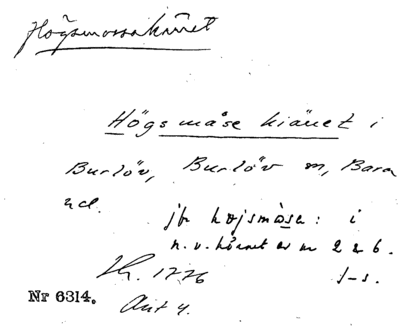 Högsmossakäret
Högsmåse kiäuet i
Burlöv, Burlöv sn, Bara
hd.
jfr hojsmåsa: i
n.v. hörnet av nr 2 & 6.
1776 J-s.
Nr 6314. Akt 4.